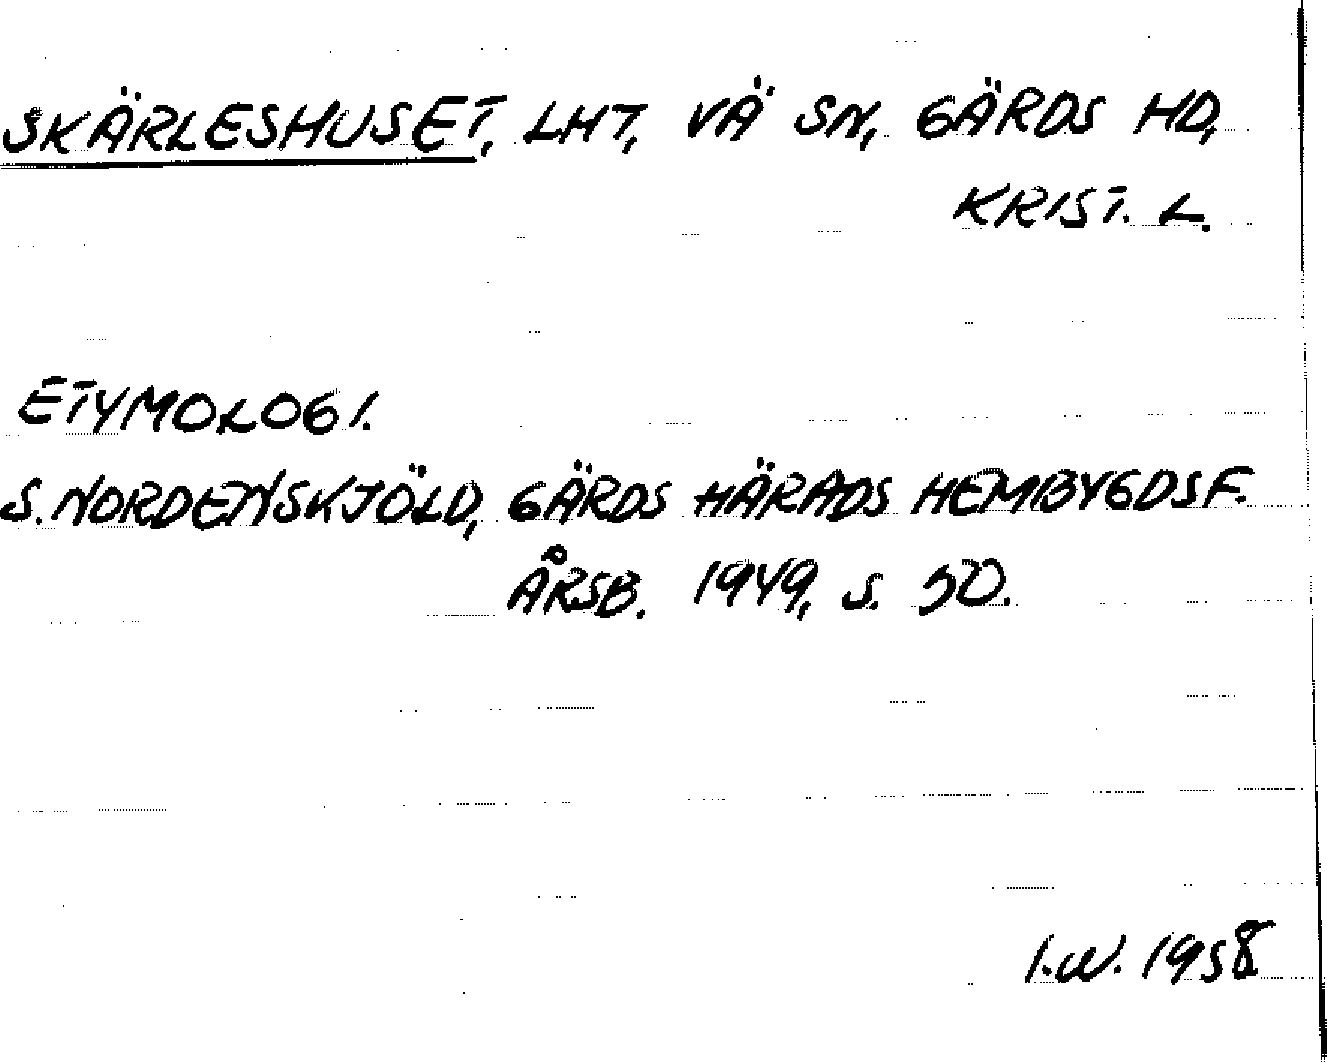 SKÄRLESHUSET, LHT, VÄ SN, GÄRDS HD,
KRIST. L.
ETYMOLOGI.
S. NORDENSKJÖLD, GÄRDS HÄRADS HEMBYGDSF.
ÅRSB. 1949, S. 50.
I.W. 1958